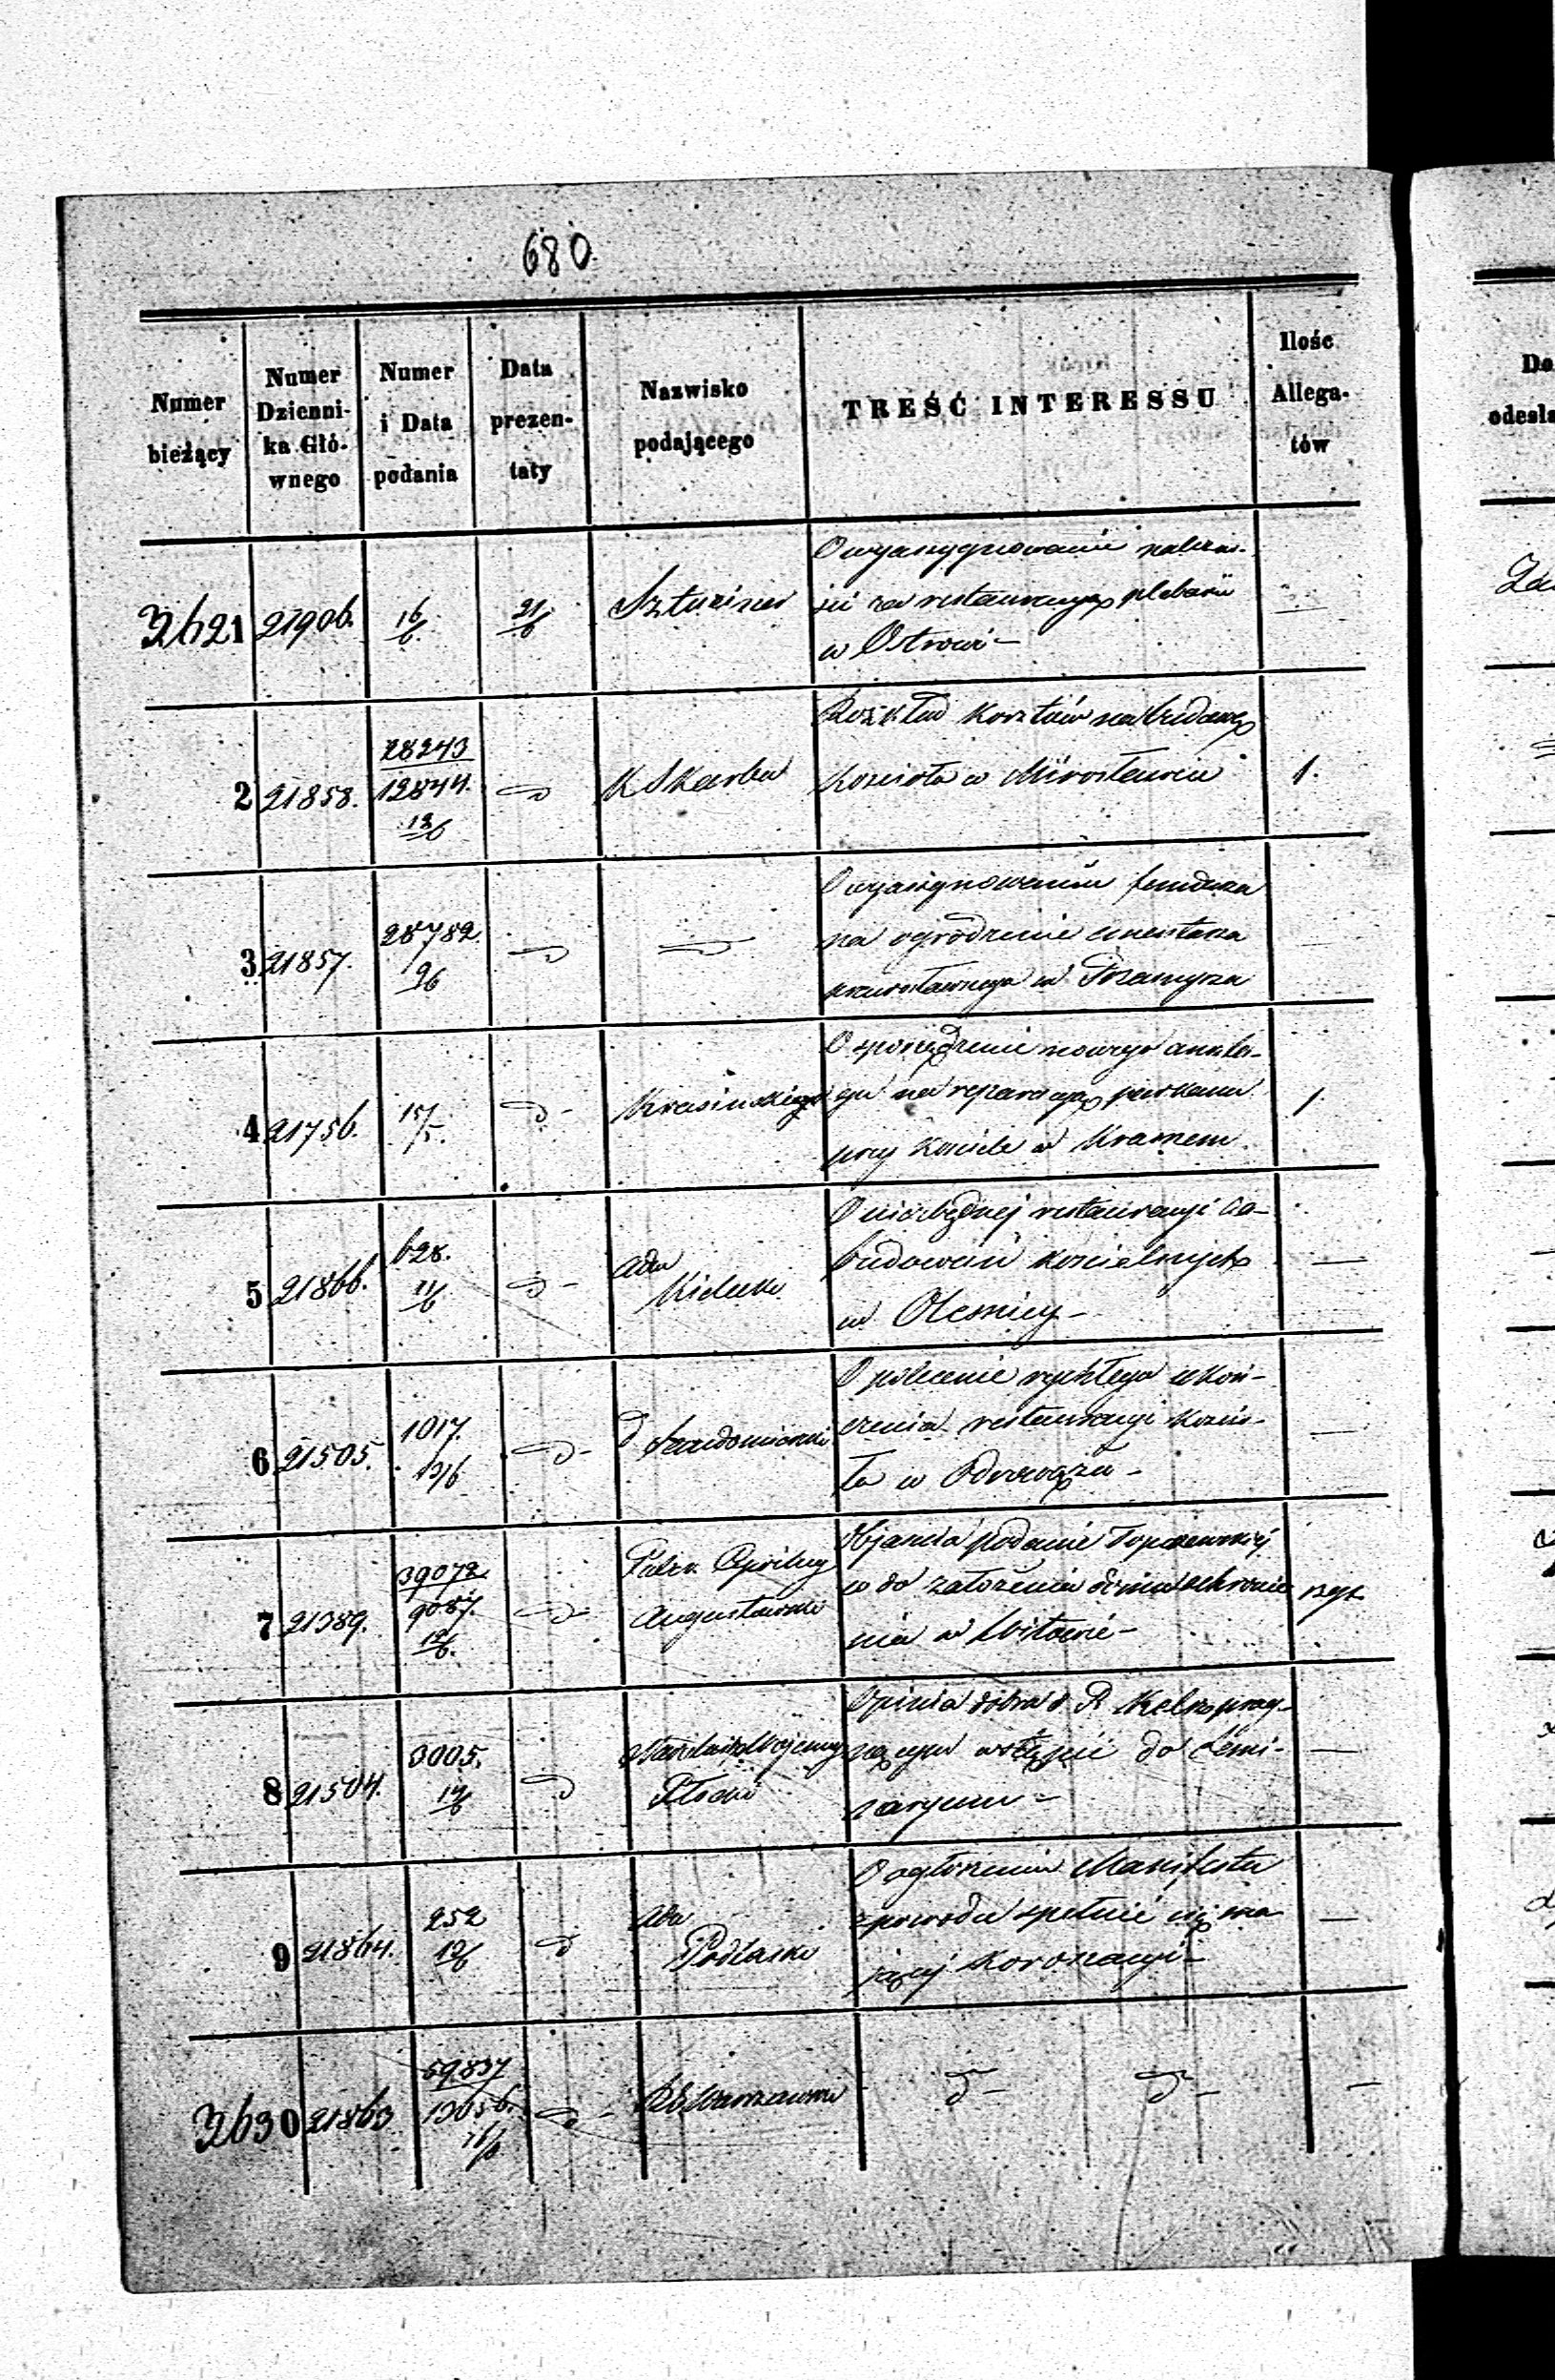 680
Numer bieżący
Numer Dzienni-ka Głó-wnego
Numer i Data podania
Data prezen-taty
Nazwisko podającego
TREŚĆ INTERESSU
Ilość Allega-tów
Do
odesła
3621 21906. 16/6. 21/6
O wyasygnowanie należno-
ści za restauracyą plebanii
w Ostrowi –
2 21858. 28243 12844. 12/6 K Skarbu
Rozkład kosztów na budowę
Kościoła w Mirosławiu 1.
3 21857. 28782. 9/6
O wyasygnowaniu funduszu
na ogrodzenie cmentarza
prawosławnego w
4 21756. 15/5. Krasińskiego
O sporządzenie nowego anszla-
gu na reparacyą parkanu 1.
przy Kościele w Kramem
5 21866. 628. 11/6 Adm Kielecki
O niezbędnej restauracyi za-
budowań kościelnych
w Oleśnicy –
6 21505. 1017. 13/6 d Sandomierski
O polecenie rychłego ukoń-
czenia restauracyi kościo-
ła w Odrowążu –
7 21389. 39072 9087. 12/6. Augustowski
Objaśnia podanie Topczewskiej
co do założenia domu schronie
nia w
8 21504. 3005. 14/6 Naczelnik Wojenny Płocki
Opinia dobra o R pragn-
nącym wstąpić do Semi-
naryum –
9 21864. 252 12/6 Adm Podlaski
O ogłoszeniu Manifestu
z powodu spełnić się ma
jącej Koronacyi –
3630 21863 59837 13656. 16/6 RG Warszawski
d – d –